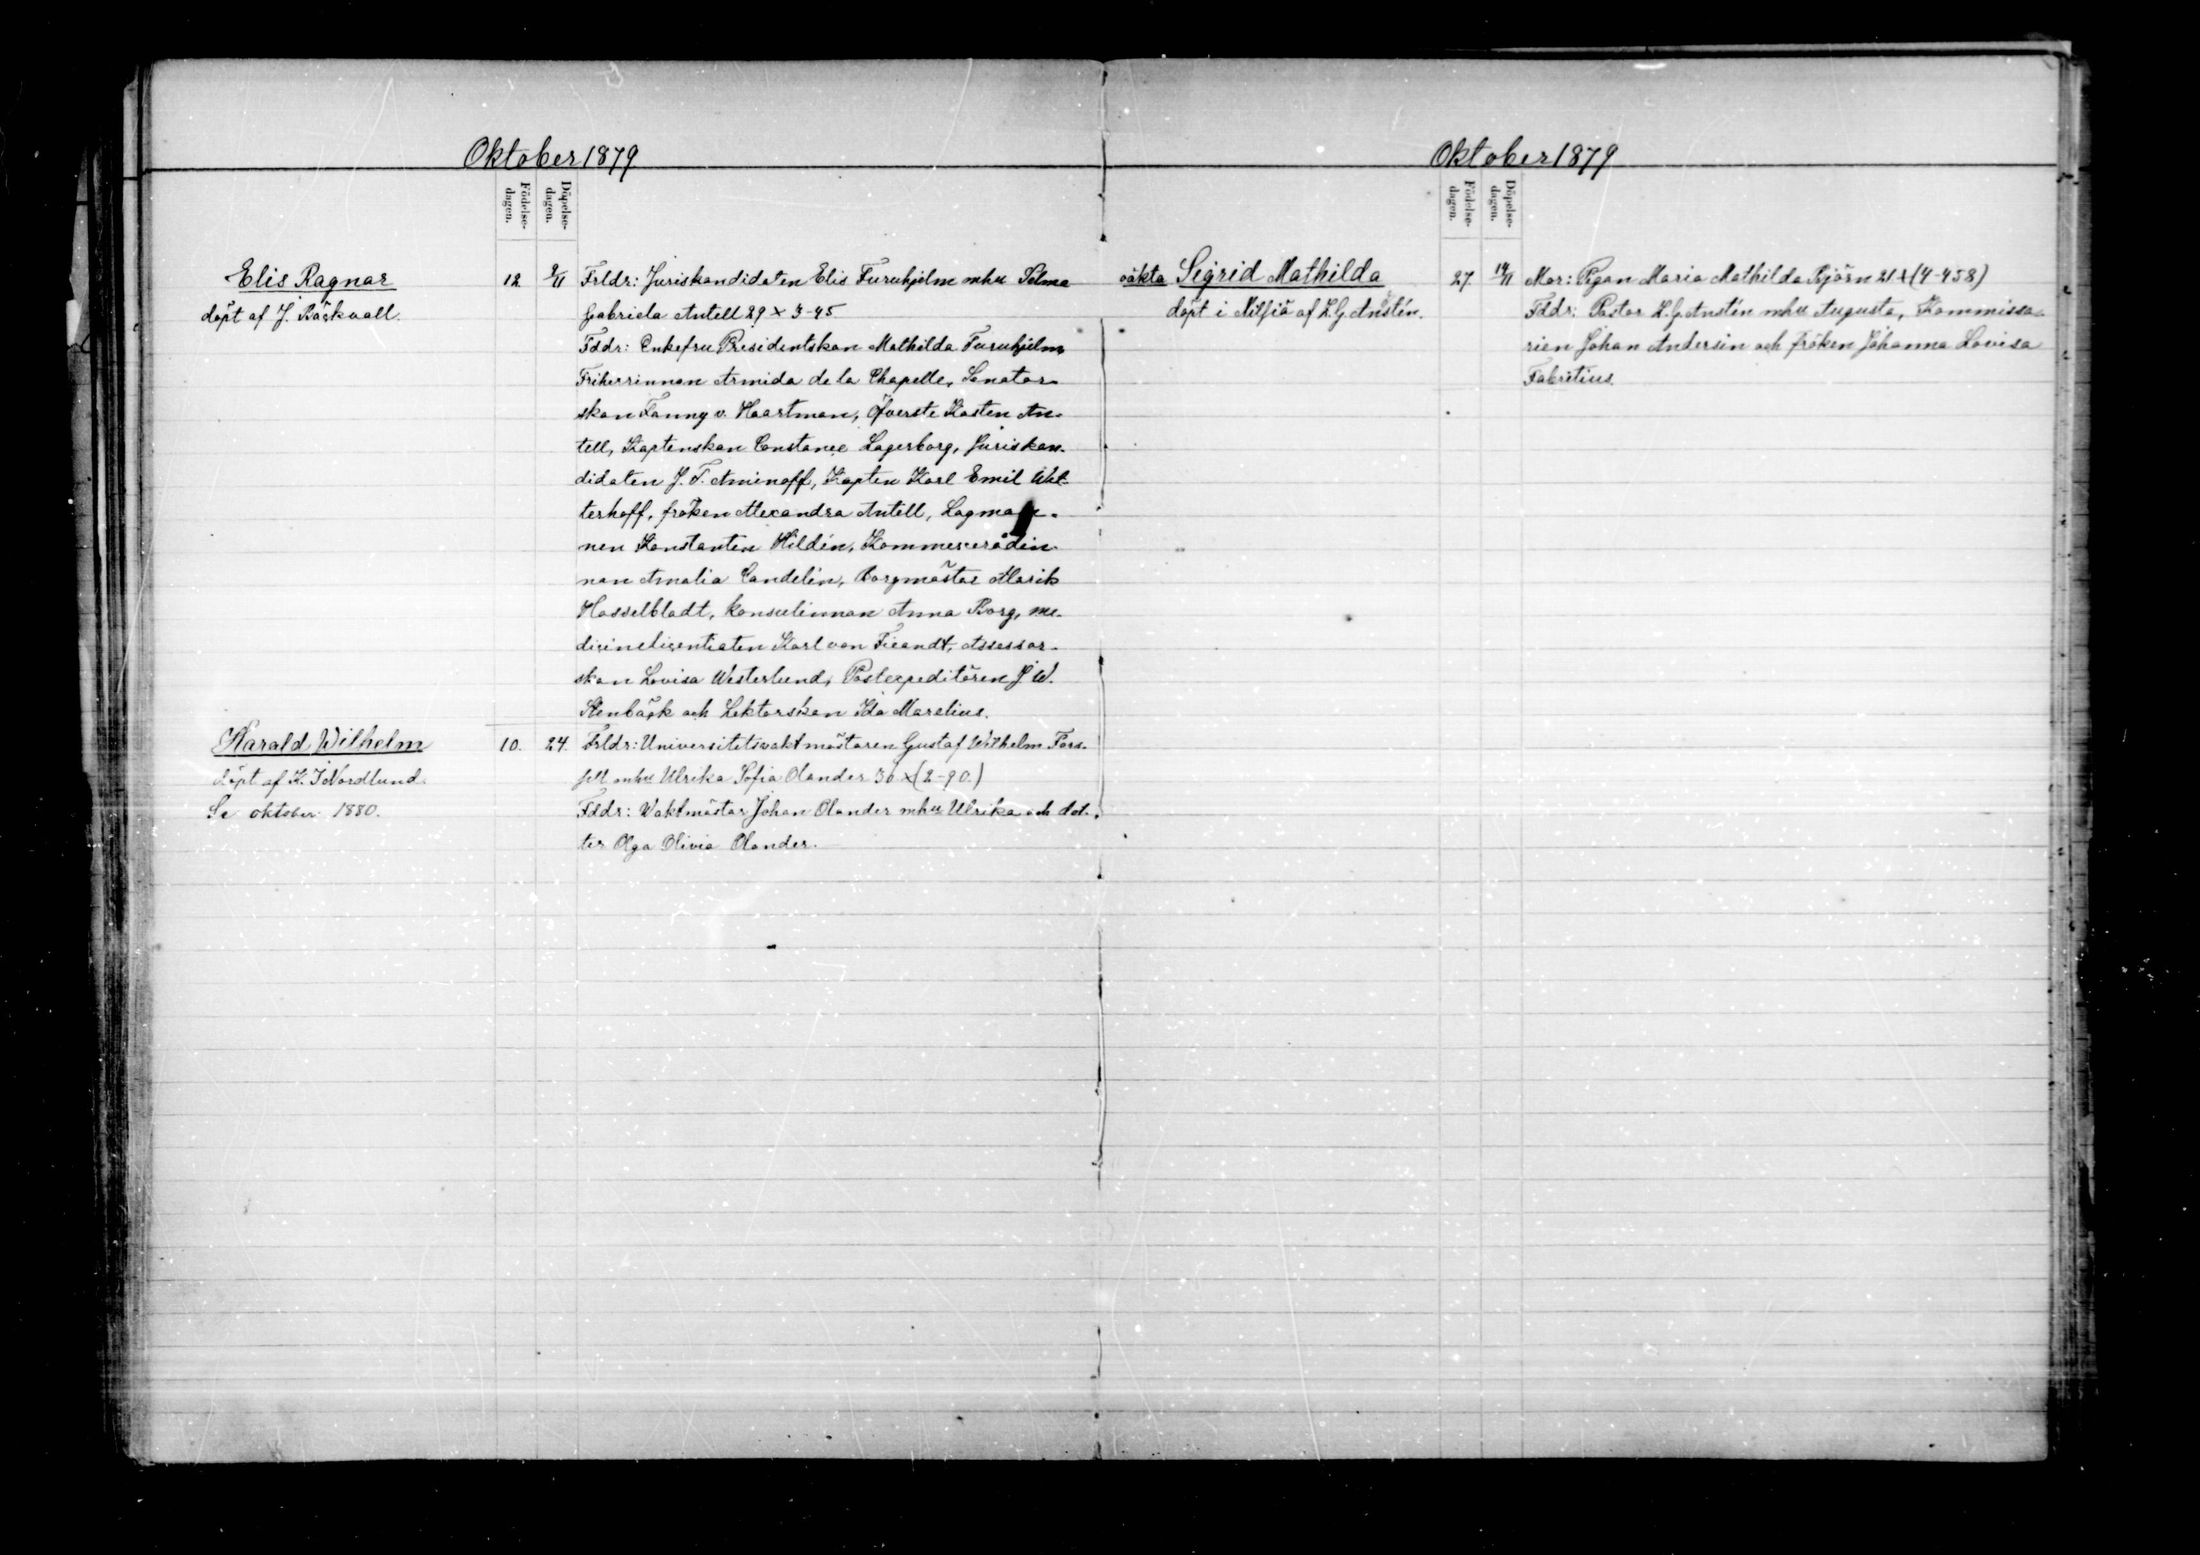 Oktober 1879
Födelse-
dagen.
Döpelse-
dagen.
Elis Ragnar
döpt af J. Bäckvall.
12
9/11
Frldr: Juriskandidaten Elis Furuhjelm mhu Selma
Gabriela Antell 29 x 3-45
Fddr: Enkefru Presidentskan Mathilda Furuhjelm
Friherrinnan Armida de la Chapelle, Senator-
skan Fanny v. Haartman, Öfverste Kasten An-
tell, Kaptenskan Constance Lagerborg, Juriskan-
didaten J. F. Aminoff, Kapten Karl Emil Wet-
terhoff, fröken Alexandra Antell, Lagman-
nen Konstanten Hildén, Kommerserådin-
nan Amalia Candelin, Borgmästar Alarik
Hasselbladt, konsulinnan Anna Borg, me-
dicinelicentiaten Karl von Fieandt, Assessor-
skan Lovisa Westerlund, Postexpeditören J W.
Stenbäck och Lektorskan Ida Marelius.
Harald Wilhelm
döpt af K. J Nordlund.
Se oktober 1880.
10.
24.
Frldr: Universitetsvaktmästaren Gustaf Wilhelm Fors-
sell mhu Ulrika Sofia Olander 36 x (2-90.)
Fddr: Waktmästar Johan Olander mhu Ulrika och dot-
ter Olga Olivia Olander.
Oktober 1879
Födelse-
dagen.
Döpelse-
dagen.
oäkta Sigrid Mathilda
döpt i Nilsiä af K G Anstén.
27.
14/11
Mor: Pigan Maria Mathilda Björn 21 + (4-458)
Fddr: Pastor K. G. Anstén mhu Augusta, Kommissa-
rien Johan Andersin och fröken Johanna Lovisa
Fabritius.